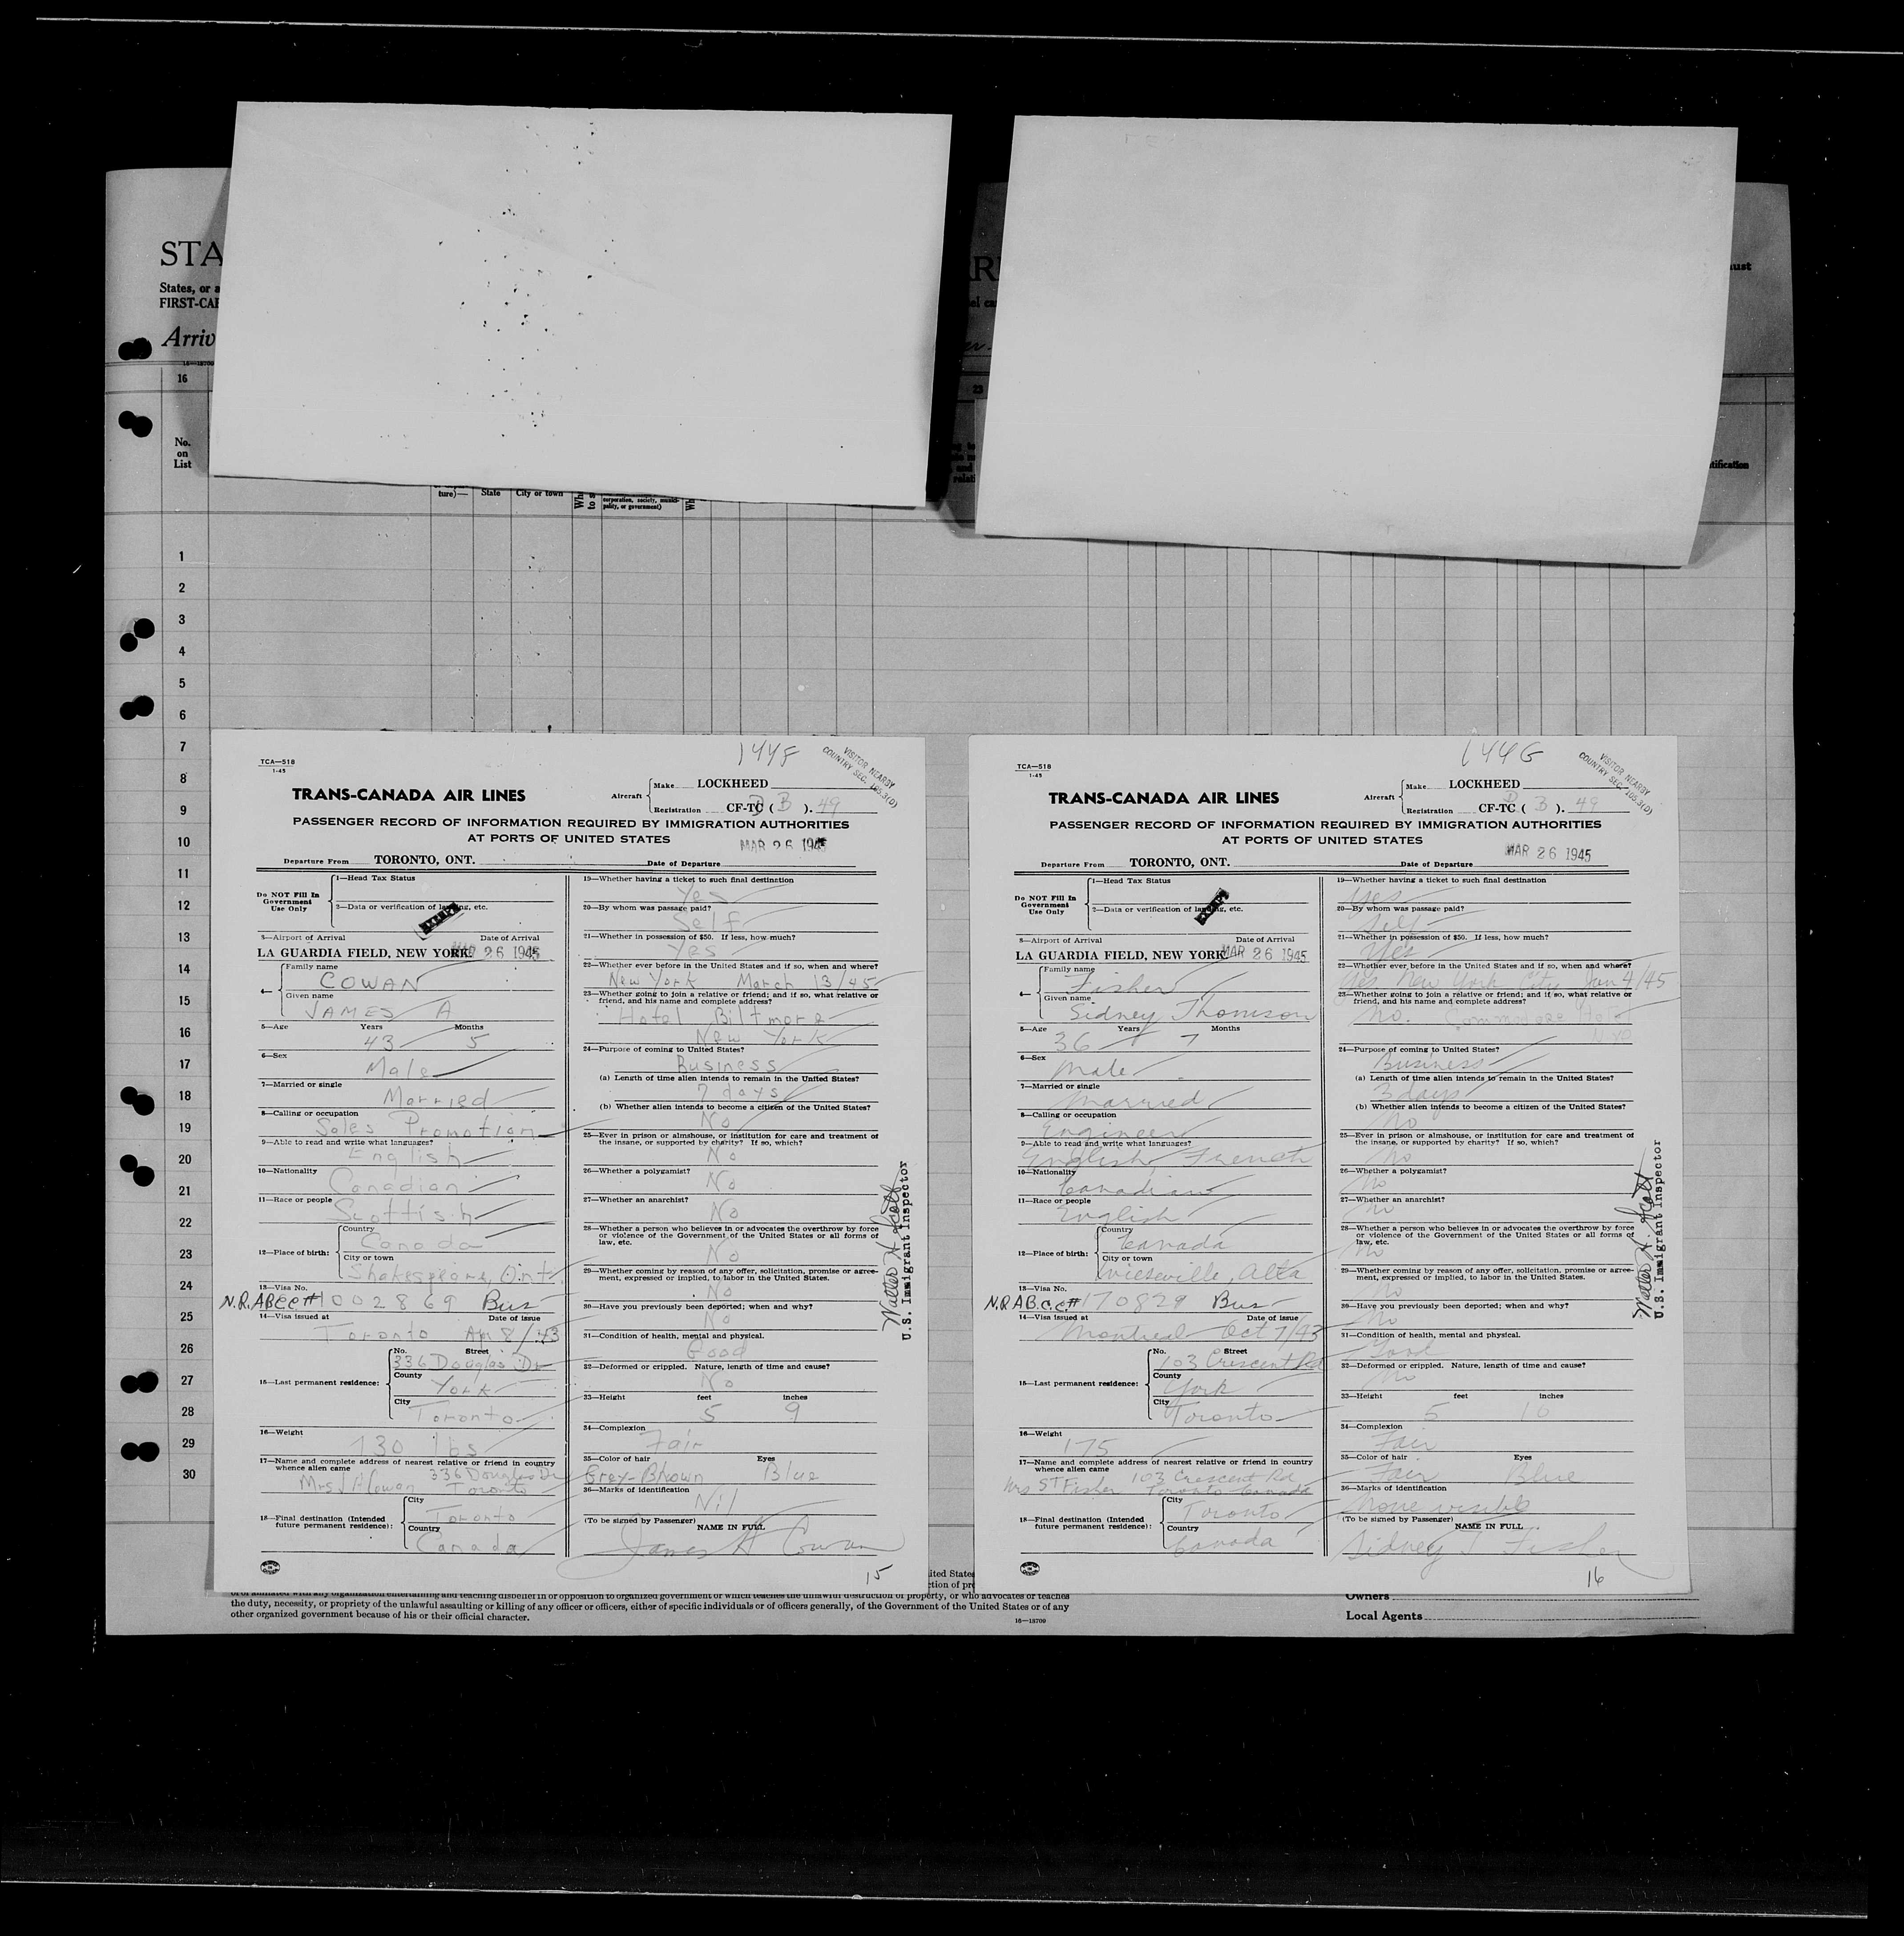 STA
States, or a
FIRST-CAB
Arriv
16
No.
on
List
ture)—
State
City or town
corporation, society, munici-
pality, or government)
23
ust
tification
1
2
3
4
5
6
7
8
9
10
11
12
13
14
15
16
17
18
19
20
21
22
23
24
25
26
27
28
29
30
TCA—518
1-45
144F
VISITOR NEARBY
COUNTRY SEC. 165.3(D)
TRANS-CANADA AIR LINES
Aircraft
Make LOCKHEED
Registration CF-TC ( B ). 49
PASSENGER RECORD OF INFORMATION REQUIRED BY IMMIGRATION AUTHORITIES
AT PORTS OF UNITED STATES
MAR 26 1945
Departure From TORONTO, ONT. Date of Departure
Do NOT Fill In
Government
Use Only
1—Head Tax Status
2—Data or verification of landing, etc.
EXEMPT
3—Airport of Arrival Date of Arrival
LA GUARDIA FIELD, NEW YORK MAR 26 1945
4—
Family name
COWAN
Given name
JAMES A
5—Age Years Months
43 5
6—Sex
Male
7—Married or single
Married
8—Calling or occupation
Sales Promotion
9—Able to read and write what languages?
English
10—Nationality
Canadian
11—Race or people
Scottish
12—Place of birth:
Country
Canada
City or town
Shakespeare, Ont.
13—Visa No.
N.R.ABCC# 1002869 Bus
14—Visa issued at Date of issue
Toronto Apr 8/43
15—Last permanent residence:
No. Street
336 Douglas Dr
County
York
City
Toronto
16—Weight
130 lbs
17—Name and complete address of nearest relative or friend in country
whence alien came
336 Douglas Dr
Mrs J A Cowan Toronto
18—Final destination (Intended
future permanent residence):
City
Toronto
Country
Canada
19—Whether having a ticket to such final destination
Yes
20—By whom was passage paid?
Self
21—Whether in possession of $50. If less, how much?
Yes
22—Whether ever before in the United States and if so, when and where?
New York March 13/45
23—Whether going to join a relative or friend; and if so, what relative or
friend, and his name and complete address?
Hotel Biltmore
New York
24—Purpose of coming to United States?
Business
(a) Length of time alien intends to remain in the United States?
days
(b) Whether alien intends to become a citizen of the United States?
No
25—Ever in prison or almshouse, or institution for care and treatment of
the insane, or supported by charity? If so, which?
No
26—Whether a polygamist?
No
27—Whether an anarchist?
No
28—Whether a person who believes in or advocates the overthrow by force
or violence of the Government of the United States or all forms of
law, etc.
No
29—Whether coming by reason of any offer, solicitation, promise or agree-
ment, expressed or implied, to labor in the United States.
No
30—Have you previously been deported; when and why?
No
31—Condition of health, mental and physical.
Good
32—Deformed or crippled. Nature, length of time and cause?
No
33—Height feet inches
5 9
34—Complexion
Fair
35—Color of hair Eyes
Grey-Brown Blue
36—Marks of identification
Nil
(To be signed by Passenger)
NAME IN FULL
James A Cowan
15
Walter H. Scott
U.S. Immigrant Inspector
TCA—518
1-45
144G
VISITOR NEARBY
COUNTRY SEC. 165.3(D)
TRANS-CANADA AIR LINES
Aircraft
Make LOCKHEED
Registration CF-TC ( B ). 49
PASSENGER RECORD OF INFORMATION REQUIRED BY IMMIGRATION AUTHORITIES
AT PORTS OF UNITED STATES
MAR 26 1945
Departure From TORONTO, ONT. Date of Departure
Do NOT Fill In
Government
Use Only
1—Head Tax Status
2—Data or verification of landing, etc.
EXEMPT
3—Airport of Arrival Date of Arrival
LA GUARDIA FIELD, NEW YORK MAR 26 1945
4—
Family name
Fisher
Given name
Sidney Thomson
5—Age Years Months
36 7
6—Sex
Male
7—Married or single
Married
8—Calling or occupation
Engineer
9—Able to read and write what languages?
English French
10—Nationality
Canadian
11—Race or people
English
12—Place of birth:
Country
Canada
City or town
Alta
13—Visa No.
N.R.AB.C.C.# 170829 Bus
14—Visa issued at Date of issue
Montreal Oct 7/43
15—Last permanent residence:
No. Street
103 Crescent Rd
County
York
City
Toronto
16—Weight
175
17—Name and complete address of nearest relative or friend in country
whence alien came
103 Crescent Rd
Mrs ST Fisher Toronto Canada
18—Final destination (Intended
future permanent residence):
City
Toronto
Country
Canada
19—Whether having a ticket to such final destination
Yes
20—By whom was passage paid?
Self
21—Whether in possession of $50. If less, how much?
Yes
22—Whether ever before in the United States and if so, when and where?
Yes New York City Jan 4/45
23—Whether going to join a relative or friend; and if so, what relative or
friend, and his name and complete address?
No. Commodore Hotel
24—Purpose of coming to United States?
Business
(a) Length of time alien intends to remain in the United States?
3 days
(b) Whether alien intends to become a citizen of the United States?
No
25—Ever in prison or almshouse, or institution for care and treatment of
the insane, or supported by charity? If so, which?
No
26—Whether a polygamist?
No
27—Whether an anarchist?
No
28—Whether a person who believes in or advocates the overthrow by force
or violence of the Government of the United States or all forms of
law, etc.
No
29—Whether coming by reason of any offer, solicitation, promise or agree-
ment, expressed or implied, to labor in the United States.
No
30—Have you previously been deported; when and why?
No
31—Condition of health, mental and physical.
Good
32—Deformed or crippled. Nature, length of time and cause?
No
33—Height feet inches
5 10
34—Complexion
Fair
35—Color of hair Eyes
Fair Blue
36—Marks of identification
None visible
(To be signed by Passenger)
NAME IN FULL
Sidney T Fisher
16
Walter H. Scott
U.S. Immigrant Inspector
ited States
ction of pro
or or affiliated with any organization entertaining and teaching disbelief in or opposition to organized government or which teaches the unlawful destruction of property, or who advocates or teaches
the duty, necessity, or propriety of the unlawful assaulting or killing of any officer or officers, either of specific individuals or of officers generally, of the Government of the United States or of any
other organized government because of his or their official character.
16—18709
Owners
Local Agents